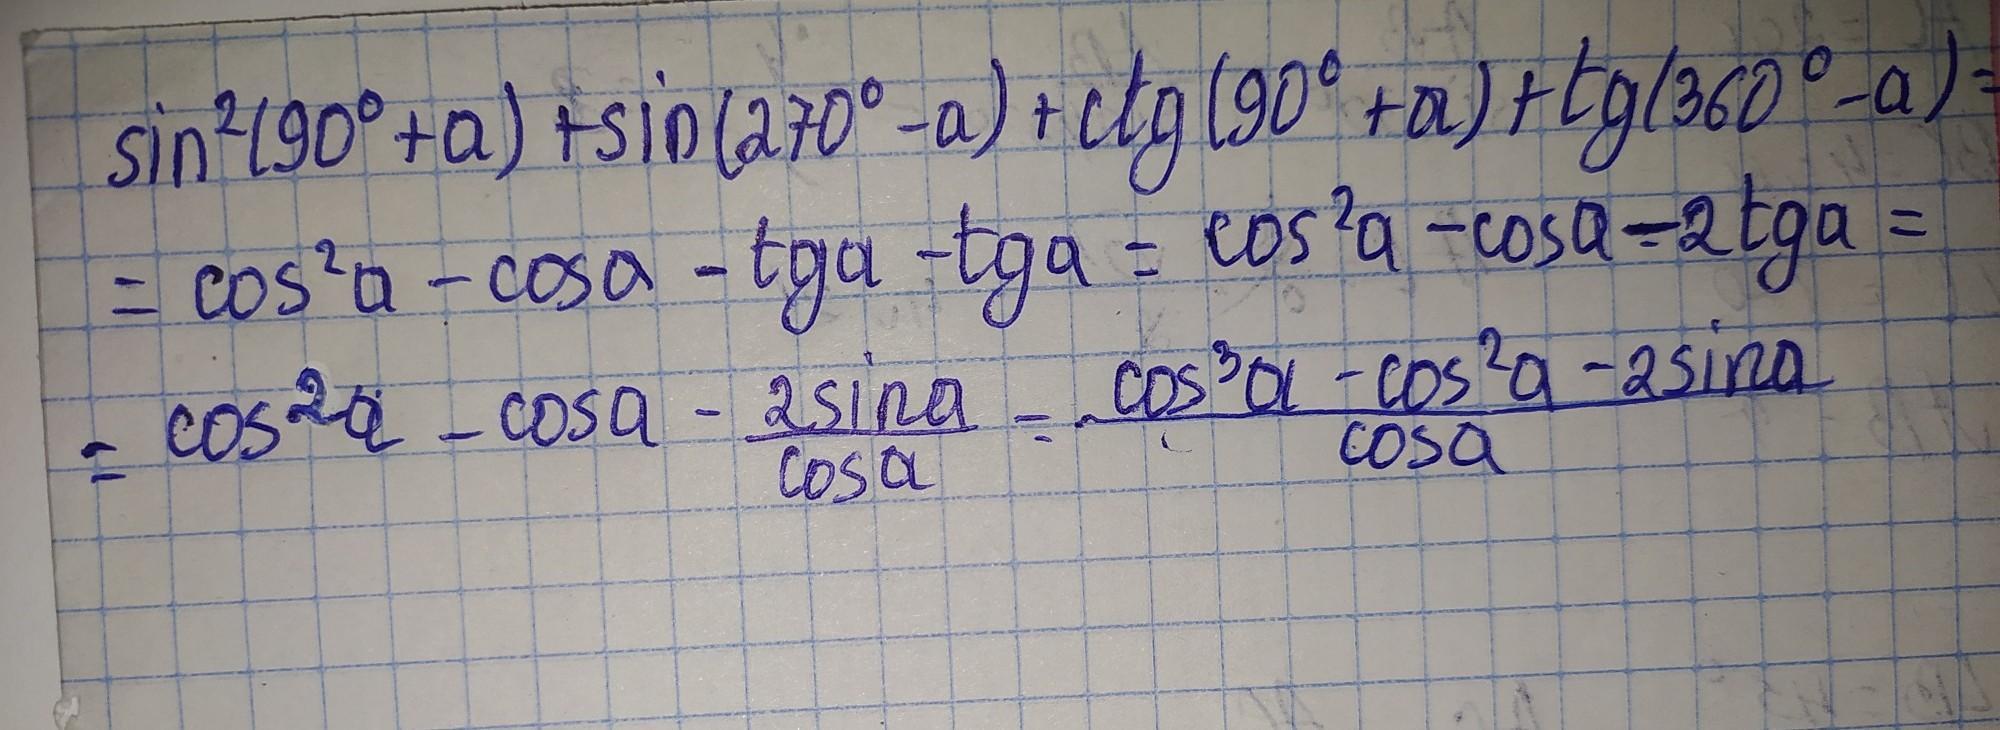 sin²(90° + a) + sin(270° - a) + ctg(90° + a) + tg(360° - a) =
= cos²a - cosa - tga - tga = cos²a - cosa - 2tga =
= cos²a - cosa - 2sina/cosa = cos³a - cos²a - 2sina/cosa